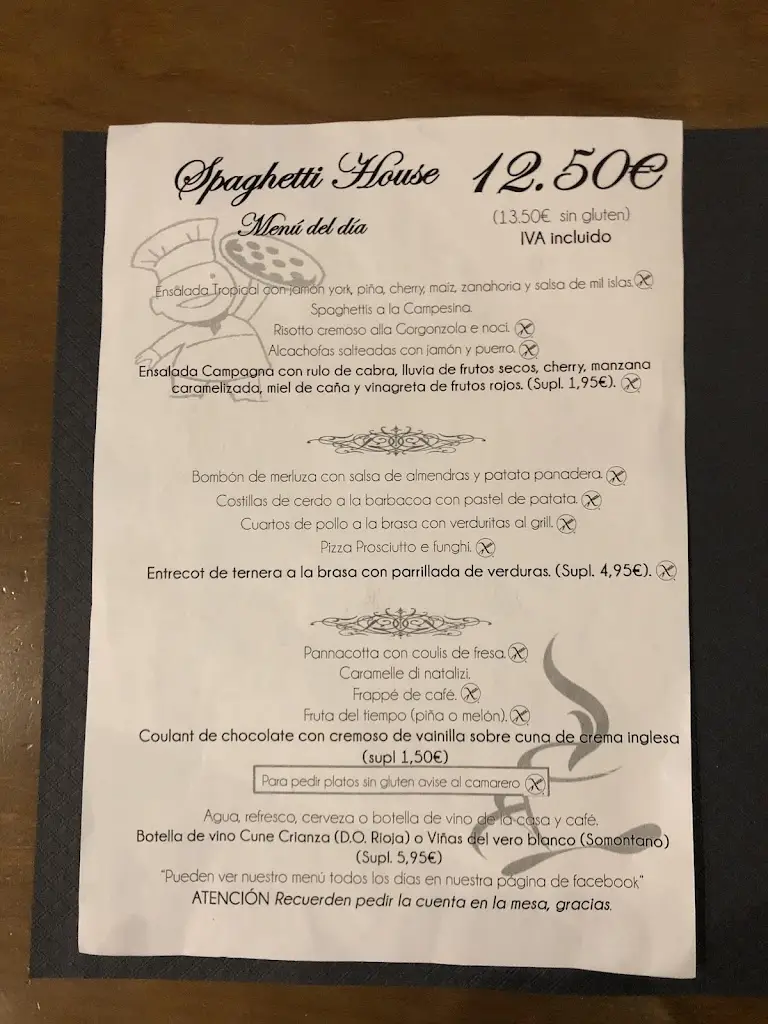 Spaghetti House 12.50€
Menú del día
(13.50€ sin gluten)
IVA incluido
Ensalada Tropical con jamón york, piña, cherry, maiz, zanahoria y salsa de mil islas.
Spaghettis a la Campesina.
Risotto cremoso alla Gorgonzola e noci.
Alcachofas salteadas con jamón y puerro.
Ensalada Campagna con rulo de cabra, lluvia de frutos secos, cherry, manzana
caramelizada, miel de caña y vinagreta de frutos rojos. (Supl. 1,95€).
Bombón de merluza con salsa de almendras y patata panadera.
Costillas de cerdo a la barbacoa con pastel de patata.
Cuartos de pollo a la brasa con verduritas al grill.
Pizza Prosciutto e funghi.
Entrecot de ternera a la brasa con parrillada de verduras. (Supl. 4,95€).
Pannacotta con coulis de fresa.
Caramelle di natalizi.
Frappé de café.
Fruta del tiempo (piña o melón).
Coulant de chocolate con cremoso de vainilla sobre cuna de crema inglesa
(supl 1,50€)
Para pedir platos sin gluten avise al camarero
Agua, refresco, cerveza o botella de vino de la casa y café.
Botella de vino Cune Crianza (D.O. Rioja) o Viñas del vero blanco (Somontano)
(Supl. 5,95€)
"Pueden ver nuestro menú todos los días en nuestra página de facebook"
ATENCIÓN Recuerden pedir la cuenta en la mesa, gracias.